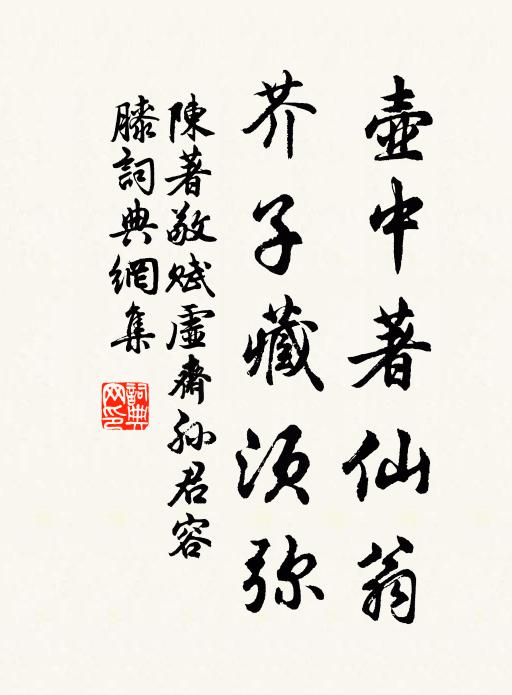 壺中著仙翁
芥子藏須弥
陳著敬賦虛齋孙君容
膝詞典網集
詞典网印